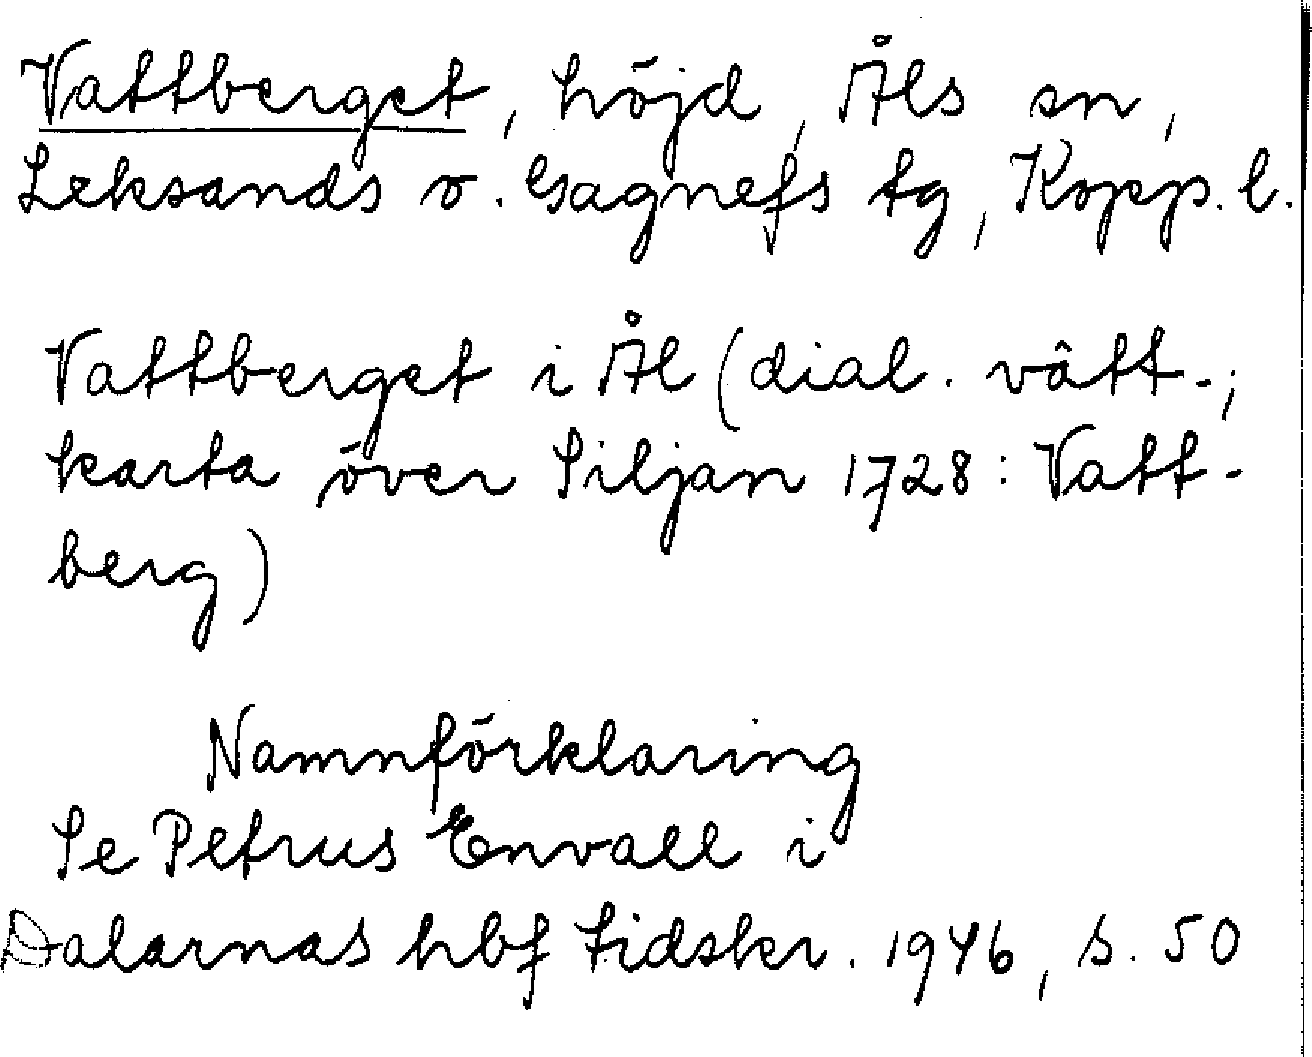 Vattberget, höjd, Åls sn,
Leksands o. Gagnefs tg, Kopp. l.
Vattberget i Ål (dial. vâtt-;
karta över Siljan 1728: Vatt-
berg)
Namnförklaring
Se Petrus Envall i
Dalarnas hbf tidskr. 1946, s. 50